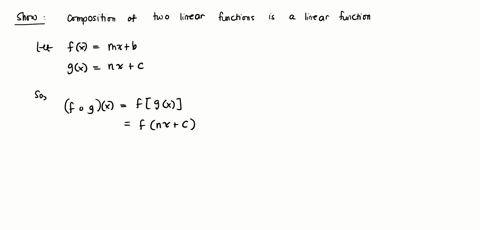 Show: Composition of two linear functions is a linear function
Let f(x) = mx+b
g(x) = nx + c
So,
(f ∘ g)(x) = f[g(x)]
= f(nx + c)